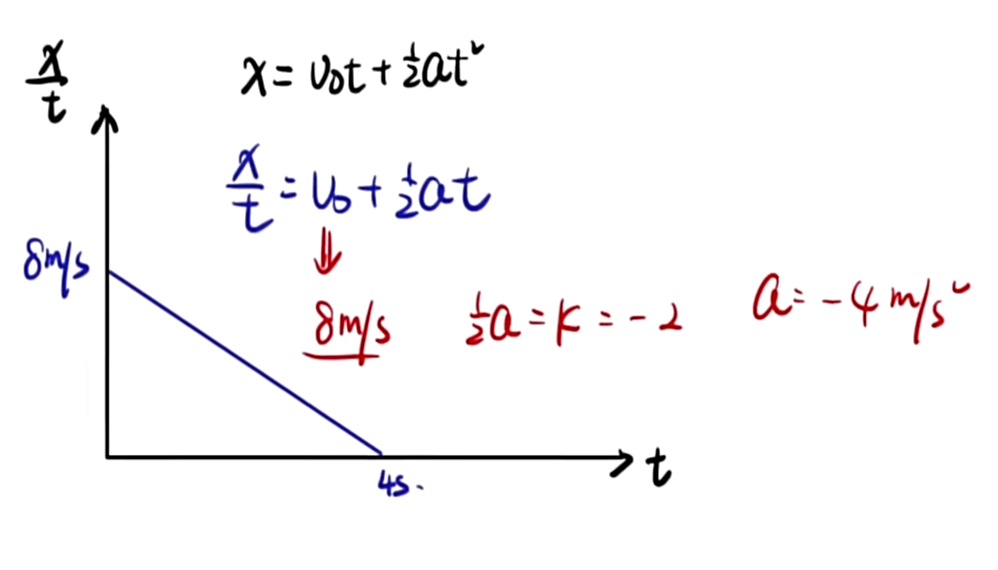 x/t
x = v₀t + ½at²
x/t = v₀ + ½at
8m/s
8m/s
½a = k = -2
a = -4 m/s²
t
4s.